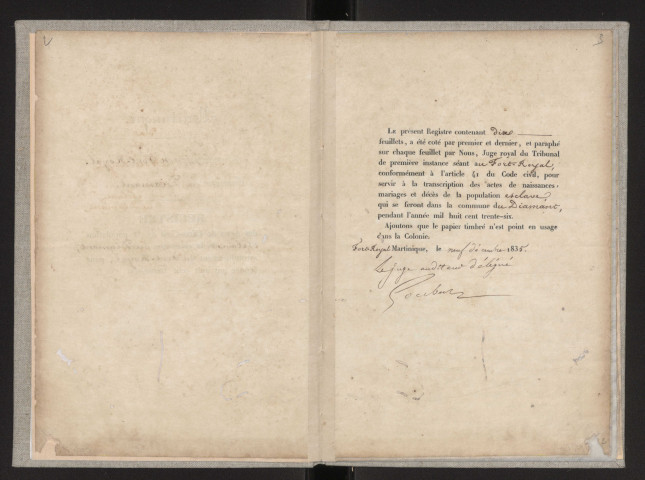 2
3
Le présent Registre contenant dix
feuillets, a été coté par premier et dernier, et paraphé
sur chaque feuillet par Nous, Juge royal du Tribunal
de première instance séant au Fort-Royal,
conformément à l'article 41 du Code civil, pour
servir à la transcription des actes de naissances-
mariages et décès de la population esclave,
qui se feront dans la commune du Diamant,
pendant l'année mil huit cent trente-six.
Ajoutons que le papier timbré n'est point en usage
dans la Colonie.
Fort-Royal Martinique, le neuf décembre 1835.
Le juge auditeur délégué